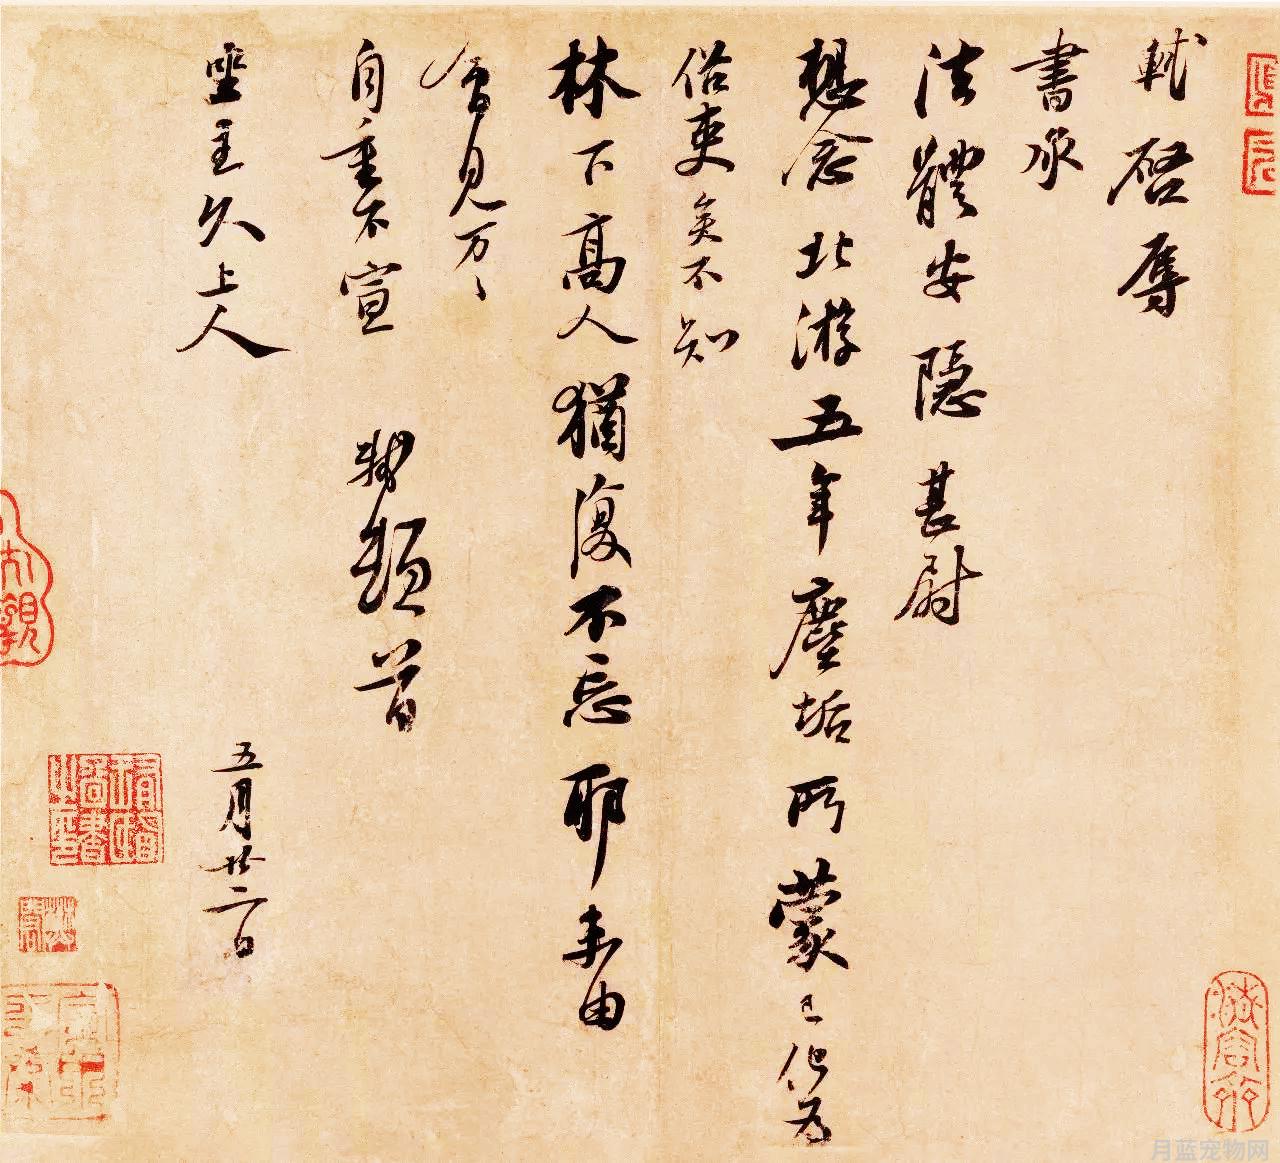 軾啓辱
書承
法體安隱甚慰
想念北游五年塵垢所蒙已化為
俗吏矣不知
林下高人猶復不忘耶未由
會見万々
自重不宣　軾頓首
坐主久上人
五月廿二日
月蓝宠物网